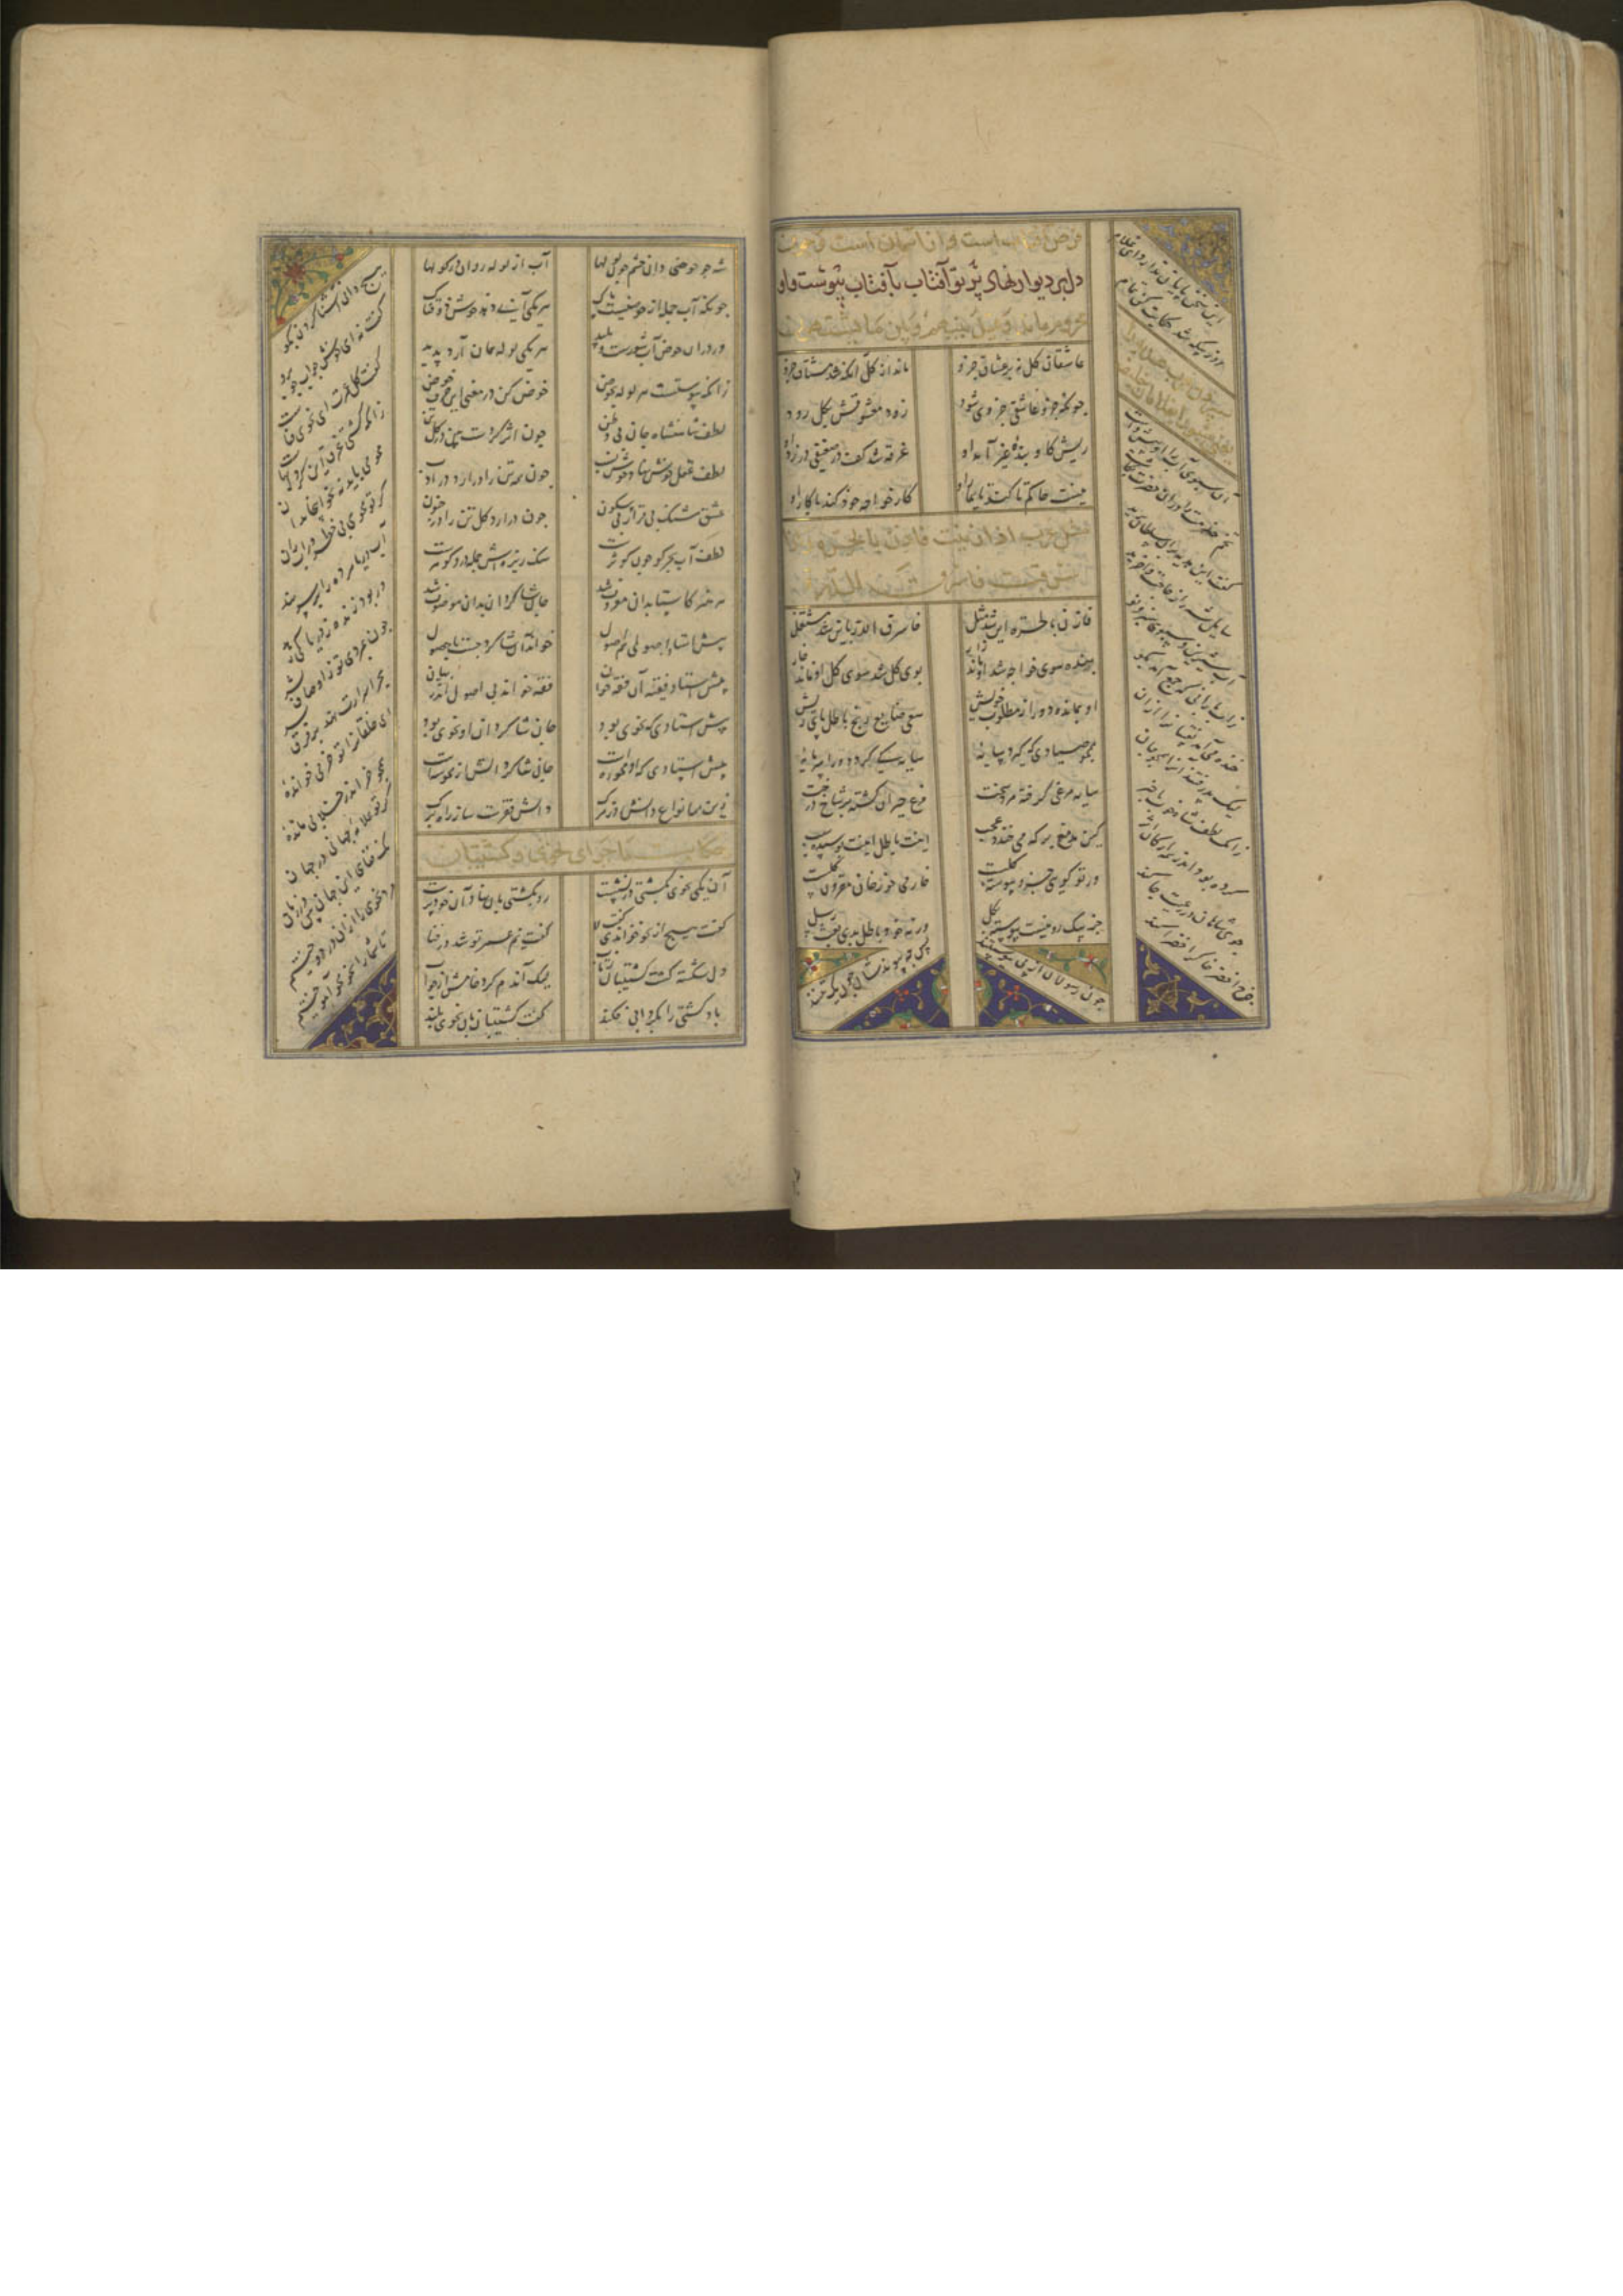 قرص آفتاب است و آن آسمان است
دل بر دیوار نهاد پرتو آفتاب بآفتاب پیوست و او
محروم ماند و حیل بینهم و بین ما یشتهون
عاشقان کل نه بر عشاق جزو ماند از کل آنکه شد مشتاق جزو
چونکه جزو عاشق جزوی شود زود معشوقش بکل رود
ریش گاو و بنده غیر آمد او غرقه شد کف در ضعیفی در زد او
نیست حاکم تا کند تیمار او کار خواجه خود کند یا کار او
مثل عرب اذا زنیت فازن بالحرة و اذا
سرقت فاسرق الدرة
فازن بالحره این شد مثل فاسرق الدره باین شد منتقل
بنده سوی خواجه شد او ماند زار بوی گل شد سوی گل او ماند خار
او بمانده دور از مطلوب خویش سعی ضایع رنج باطل پای ریش
همچو صیادی که گیرد سایه سایه کی گردد ورا سرمایه
سایه مرغی گرفته مرد سخت مرغ حیران گشته بر شاخ درخت
کین مدمغ بر که می خندد عجب اینت باطل اینت پوسیده سبب
ور تو گویی جزو پیوسته کلست خار می خور خار مقرون گلست
جز ز یک رو نیست پیوسته بکل ورنه خود باطل بدی بعث رسل
چون رسولان از پی پیوستنند پس چه پیوندندشان چون یک تنند
این سخن پایان ندارد ای غلام
روز بیکه شد حکایت کن تمام
آن سبوی آب را در پیش داشت
تخم خدمت را در آن حضرت بکاشت
گفت این هدیه بدان سلطان برید
سایل شه را ز حاجت وا خرید
آب شیرین و سبوی سبز و نو
ز آب بارانی که جمع آمد بگو
خنده می آمد نقیبان را از آن
لیک پذرفتند آنرا همچو جان
زانک لطف شاه خوب باخبر
کرده بود اندر همه ارکان اثر
خوی شاهان در رعیت جا کند
چرخ اخضر خاک را خضرا کند
شه چو حوضی دان حشم چون لولها آب از لوله روان در کولها
چونکه آب جمله از حوضیست پاک هر یکی آبی دهد خوش ذوقناک
ور در آن حوض آب شورست و پلید هر یکی لوله همان آرد پدید
زانکه پیوستست هر لوله بحوض خوض کن در معنی این حرف خوض
لطف شاهنشاه جان بی وطن چون اثر کردست بین در کل تن
لطف عقل خوش نهاد خوش نسب چون همه تن را در آرد در ادب
عشق شنگ بی قرار بی سکون چون در آرد کل تن را در جنون
لطف آب بحر کو چون کوثرست سنگ ریزه ش جمله در و گوهرست
هر هنر کاستا بدان معروف شد جان شاگردان بدان موصوف شد
پیش استاد اصولی هم اصول خواند آن شاگرد چست با حصول
پیش استاد فقیه آن فقه خوان فقه خواند نی اصول اندر بیان
پیش استادی که نحوی بود جان شاگردان او نحوی بود
پیش استادی که او محو رهست جان شاگردانش از محو شهست
زین همه انواع دانش روز مرگ دانش فقرست ساز راه و برگ
حکایت ماجرای نحوی و کشتیبان
آن یکی نحوی بکشتی در نشست رو بکشتی بان نهاد آن خودپرست
گفت هیچ از نحو خواندی گفت لا گفت نیم عمر تو شد در فنا
دل شکسته گشت کشتیبان ز تاب لیک آندم کرد خامش از جواب
باد کشتی را بگردابی فکند گفت کشتیبان بآن نحوی بلند
هیچ دانی آشنا کردن بگو
گفت نه ای خوش جواب خوب رو
گفت کل عمرت ای نحوی فناست
زانکه کشتی غرق این گردابهاست
محو می باید نه نحو اینجا بدان
گر تو محوی بی خطر در آب ران
آب دریا مرده را بر سر نهد
ور بود زنده ز دریا کی رهد
چون بمردی تو ز اوصاف بشر
بحر اسرارت نهد بر فرق سر
ای که خلقان را تو خر می خوانده
همچو خر این زمان بر یخ مانده
گر تو علامه جهانی در جهان
نک فنای این جهان بین وین زمان
مرد نحوی را از آن در دوختیم
تا شما را نحو محو آموختیم